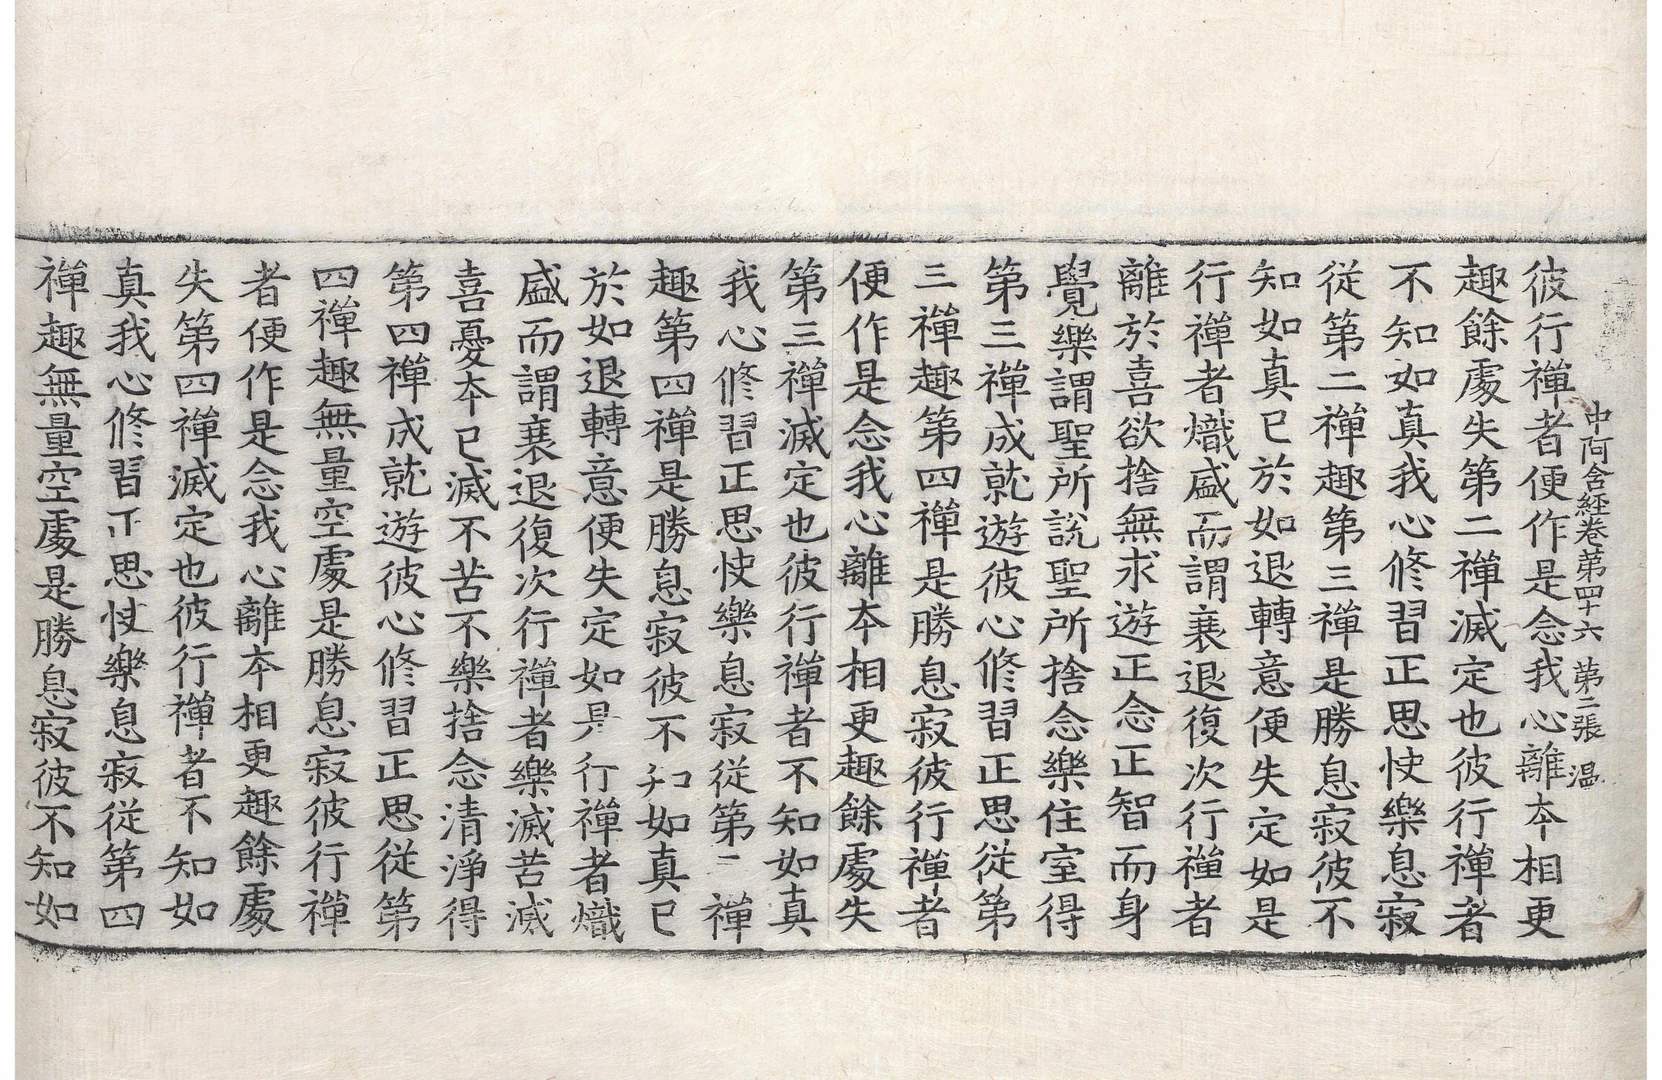 中阿含經卷苐四十六 第二張 溫
彼行禪者便作是念我心離夲相更
趣餘處失第二禪滅定也彼行禪者
不知如真我心修習正思快樂息寂
從第二禪趣第三禪是勝息寂彼不
知如真已於如退轉意便失定如是
行禪者熾盛而謂衰退復次行禪者
離於喜欲捨無求遊正念正智而身
覺樂謂聖所說聖所捨念樂住室得
第三禪成就遊彼心修習正思從第
三禪趣第四禪是勝息寂彼行禪者
便作是念我心離夲相更趣餘處失
第三禪滅定也彼行禪者不知如真
我心修習正思快樂息寂從第 禪
趣第四禪是勝息寂彼不知如真已
於如退轉意便失定如是行禪者熾
盛而謂衰退復次行禪者樂滅苦滅
喜憂夲已滅不苦不樂捨念清淨得
第四禪成就遊彼心修習正思從第
四禪趣無量空處是勝息寂彼行禪
者便作是念我心離夲相更趣餘處
失第四禪滅定也彼行禪者不知如
真我心修習正思快樂息寂從第四
禪趣無量空處是勝息寂彼不知如